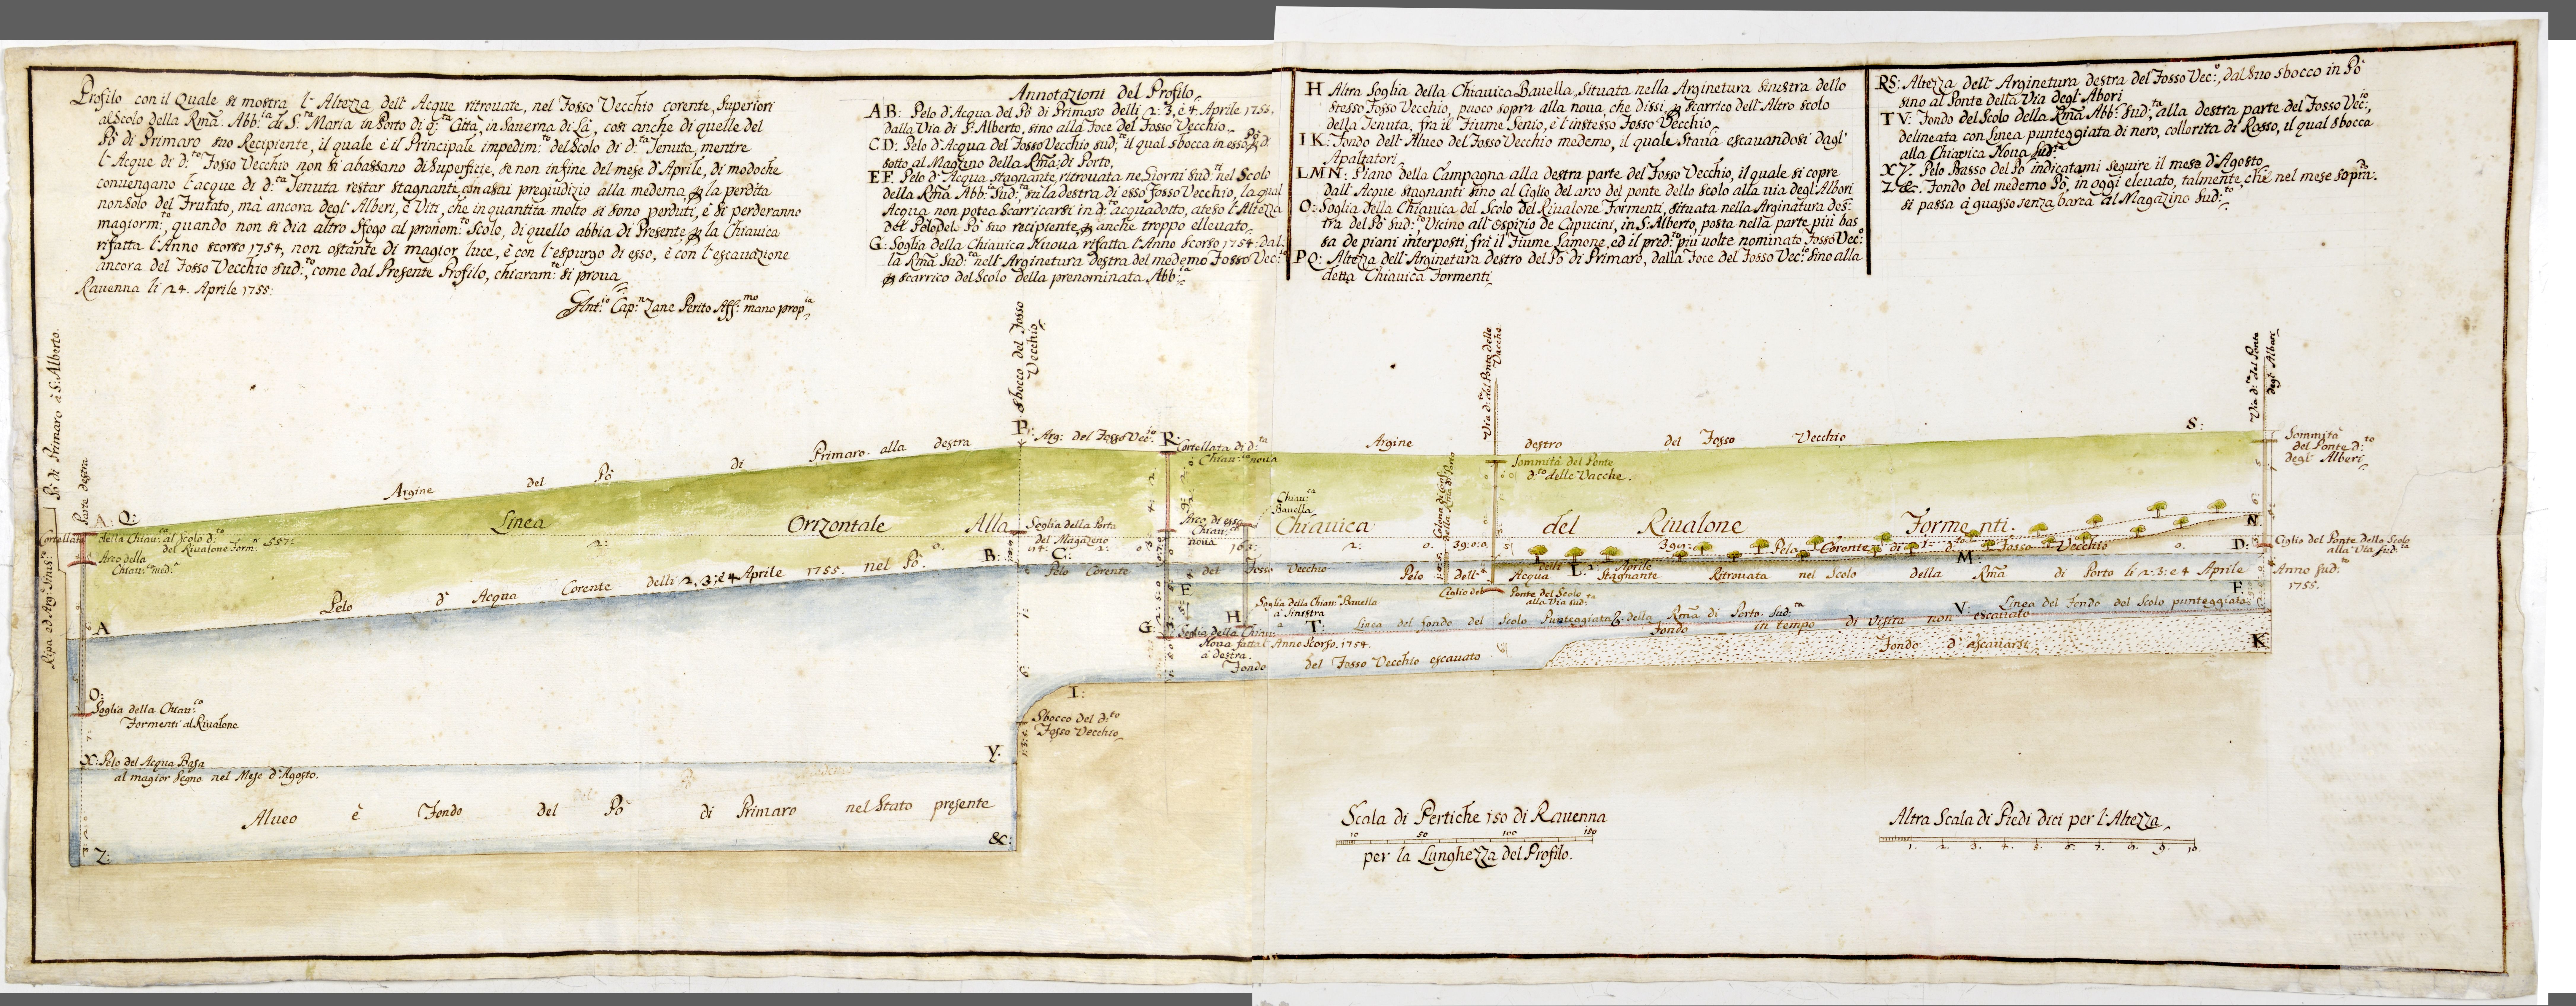 Profilo con il Quale si mostra l'Altezza dell'Acque ritrovate, nel Fosso Vecchio corente, Superiori
al Scolo della Rma: Abb:ia di S:ta Maria in Porto di q:ta Città, in Saverna di Là, così anche di quelle del
Pò di Primaro suo Recipiente, il quale è il Principale impedim:to del Scolo di d:ta Tenuta, mentre
l'Acque di d:to Fosso Vecchio non si abassano di Superficie, se non in fine del mese d'Aprile, di modoche
convengano l'acque di d:ta Tenuta restar stagnanti, con assai pregiudizio alla medema, p la perdita
non solo del Frutato, mà ancora degl'Alberi, è Viti, che in quantita molto si sono perduti, è si perderanno
magiorm:te, quando non si dia altro Sfogo al pronom:to Scolo, di quello abbia di Presente, p la Chiavica
rifatta l'Anno scorso 1754, non ostante di magior luce, è con l'espurgo di esso, è con l'escavazione
ancora del Fosso Vecchio sud:to, come dal Presente Profilo, chiaram:te si prova
Ravenna li 24. Aprile 1755:
Ant:io Cap:n Zane Perito Aff:mo mano prop:ia
Annotazioni del Profilo
AB: Pelo d'Acqua del Pò di Primaro delli 2: 3, è 4 Aprile 1755.
dalla Via di S: Alberto, sino alla Foce del Fosso Vecchio
CD: Pelo d'Acqua del Fosso Vecchio sud:to, il qual sbocca in esso Pò di
sotto al Magazino della Rma: di Porto,
EF. Pelo d'Acqua stagnante, ritrovata ne Giorni Sud:ti nel Scolo
della Rma Abb:ia Sud:ta, su la destra di esso Fosso Vecchio, la qual
Acqua non potea scarricarsi in d:to acquadotto, ateso l'Altezza
del Pelo del Pò suo recipiente, p anche troppo ellevato
G: Soglia della Chiavica Nuova rifatta l'Anno scorso 1754: dal:
la Rma Sud:ta nell'Arginetura destra del medemo Fosso Vec:o
p scarrico del Scolo della prenominata Abb:ia
H Altra Soglia della Chiavica Bavella, Situata nella Arginetura Sinestra dello
stesso Fosso Vecchio, puoco sopra alla nova, che dissi, p scarrico dell'Altro scolo
della Tenuta, frà il Fiume Senio, è l'instesso Fosso Vecchio
IK: Fondo dell'Alveo del Fosso Vecchio medemo, il quale stava escavandosi dagl'
Apaltatori
LMN: Piano della Campagna alla destra parte del Fosso Vecchio, il quale si copre
dall'Acque stagnanti sino al Ciglio del arco del ponte dello Scolo alla via degl'Albori
O: Soglia della Chiavica del Scolo del Rivalone Formenti, situata nella Arginatura des:
tra del Pò Sud:to, Vicino all'Espizio de Capucini, in S: Alberto, posta nella parte più bas
sa de piani interposti, frà il Fiume Lamone, ed il pred:to più volte nominato Fosso Vec:o
PQ: Altezza dell'Arginetura destro del Pò di Primaro, dalla Foce del Fosso Vec:o sino alla
detta Chiavica Formenti
RS: Altezza dell'Arginetura destra del Fosso Vec:o, dal suo sbocco in Pò
sino al Ponte della Via degl'Abori
TV: Fondo del Scolo della Rma Abb: Sud:ta, alla destra parte del Fosso Vec:io,
delineata con Linea punteggiata di nero, collorita di Rosso, il qual sbocca
alla Chiavica Nova Sud:ta
XY. Pelo Basso del Pò indicatami seguire il mese d'Agosto
Z&: Fondo del medemo Pò, in oggi elevato, talmente, che nel mese sopra:to
si passa à guasso senza barca al Magazino Sud:to
Pò di Primaro à S: Alberto.
Ripa ed Arg: Sinis:to
Parte destra
Sbocco del Fosso
Vecchio
Via d: del Ponte delle
Vacche
Via d:ta del Ponte
degl'Alberi
A: Q:
Argine del Pò di Primaro alla destra
P:
Arg: del Fosso Vec:io
R:
Argine destro del Fosso Vecchio
S:
Cortellata di d:ta
Chiav:ca nova
Sommità del Ponte
d:to delle Vacche.
Sommità
del Ponte d:to
degl'Alberi
Linea Orizontale Alla Chiavica del Rivalone Formenti.
Cortellata della Chiav: al Scolo d:to
del Rivalone Form:ti
Arco della
Chiav:ca med:a
Soglia della Porta
del Magazeno
Arco di essa
Chiav:ca
nova
Chiav:ca
Bavella
Pelo Corente di d:to Fosso Vecchio
N
B:
C:
M:
D:
Ciglio del Ponte dello Scolo
alla Via sud:ta
Pelo d'Acqua Corente delli 2, 3, è 4 Aprile 1755. nel Pò
Pelo Corente del Fosso Vecchio
Pelo dell'Acqua Stagnante Ritrovata nel Scolo della Rma di Porto li 2: 3: e 4 Aprile
Anno Sud:to
1755.
L:
E
F
A
Ciglio del Ponte del Scolo
alla Via sud:ta
Soglia della Chiav:ca Bavella
à Sinistra
H
V:
Linea del Fondo del Scolo punteggiata
G
T:
Linea del fondo del Scolo Punteggiata della Rma di Porto Sud:ta
Soglia della Chiav:ca
Nova fatta l'Anno Scorso 1754.
à destra.
Fondo in tempo di visita non escavato
K
Fondo del Fosso Vecchio escavato
Fondo d'escavarsi
I:
O:
Soglia della Chiav:ca
Formenti al Rivalone
Sbocco del d:to
Fosso Vecchio
X: Pelo del Acqua Basa
al magior Segno nel Mese d'Agosto.
Y.
Alveo è Fondo del Pò di Primaro nel Stato presente
Z:
&:
Scala di Pertiche 150 di Ravenna
10 50 100 150
per la Lunghezza del Profilo.
Altra Scala di Piedi dieci per l'Altezza
1. 2. 3. 4. 5. 6. 7. 8. 9. 10